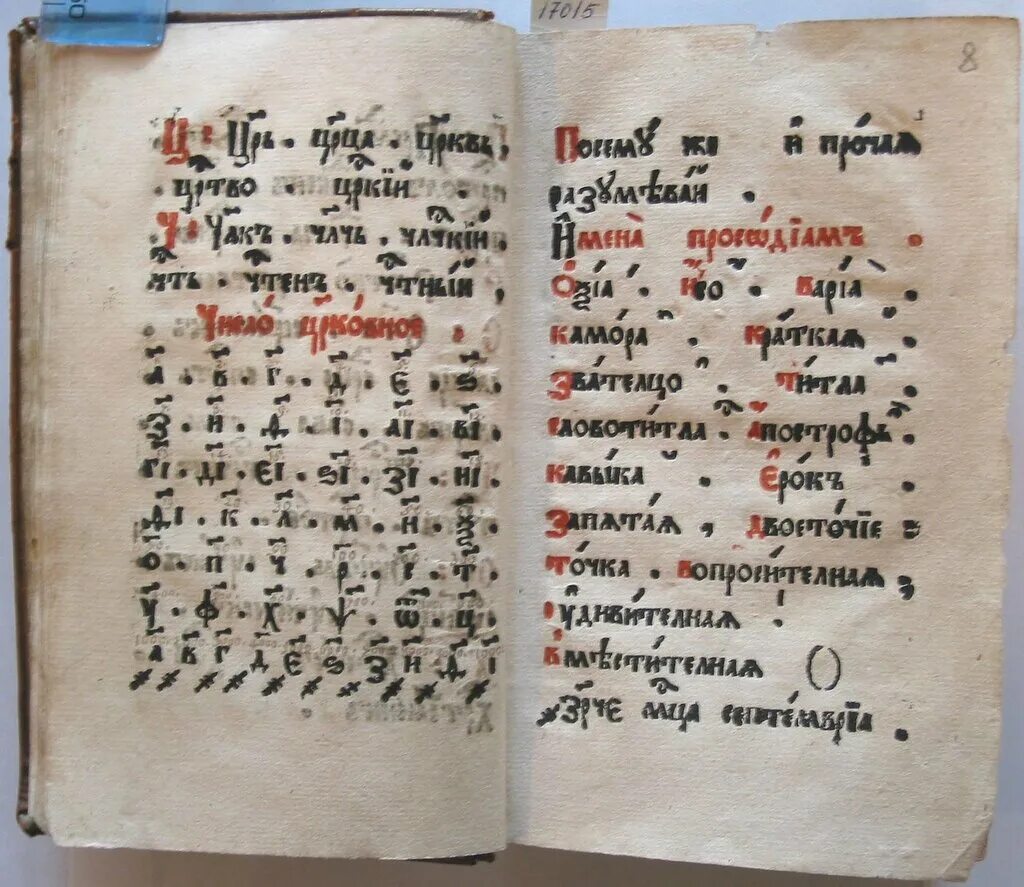 17015
8
Ц: Цр҃ь . цр҃ца . цр҃квь .
. црⷭ҇тво . црⷭ҇кїй .
Ч: Чл҃къ . чл҃чь . члⷭ҇чкїй .
чтⷭ҇ь . чтⷭ҇енъ . чтⷭ҇ный .
. Число̀ цр҃ко́вное .
а҃ . в҃ . г҃ . д҃ . є҃ . ѕ҃ .
и҃ . ѳ҃ . і҃ . аі҃ . ві҃ .
гі҃ . ді҃ . єі҃ . ѕі҃ . зі҃ . иі҃
ѳі҃ . к҃ . л҃ . м҃ . н҃ . ѯ҃
о҃ . п҃ . ч҃ . р҃ . с҃ . т҃ .
у҃ . ф҃ . х҃ . ѱ҃ . ѿ҃ . ц҃ .
҂а ҂в ҂г ҂д ҂є ҂ѕ ҂з ҂и ҂ѳ ҂і
Посемꙋ́ же и҆ про́чая
разꙋмѣва́й .
И҆мена̀ просѡ́дїамъ .
Ѻ҆ѯі́а И҆́со Варі́а .
Камо́ра Кра́ткая .
Зва́телцо Ти́тла .
Словоти́тла . А҆постро́фъ .
Кавы́ка . Є҆ро́къ .
Запята́я , Двоето́чїе :
То́чка . Вопроси́телная ;
Оу҆диви́телная !
Вмѣсти́телная ()
҂зрч҃є мⷭ҇ца септе́мврїа .